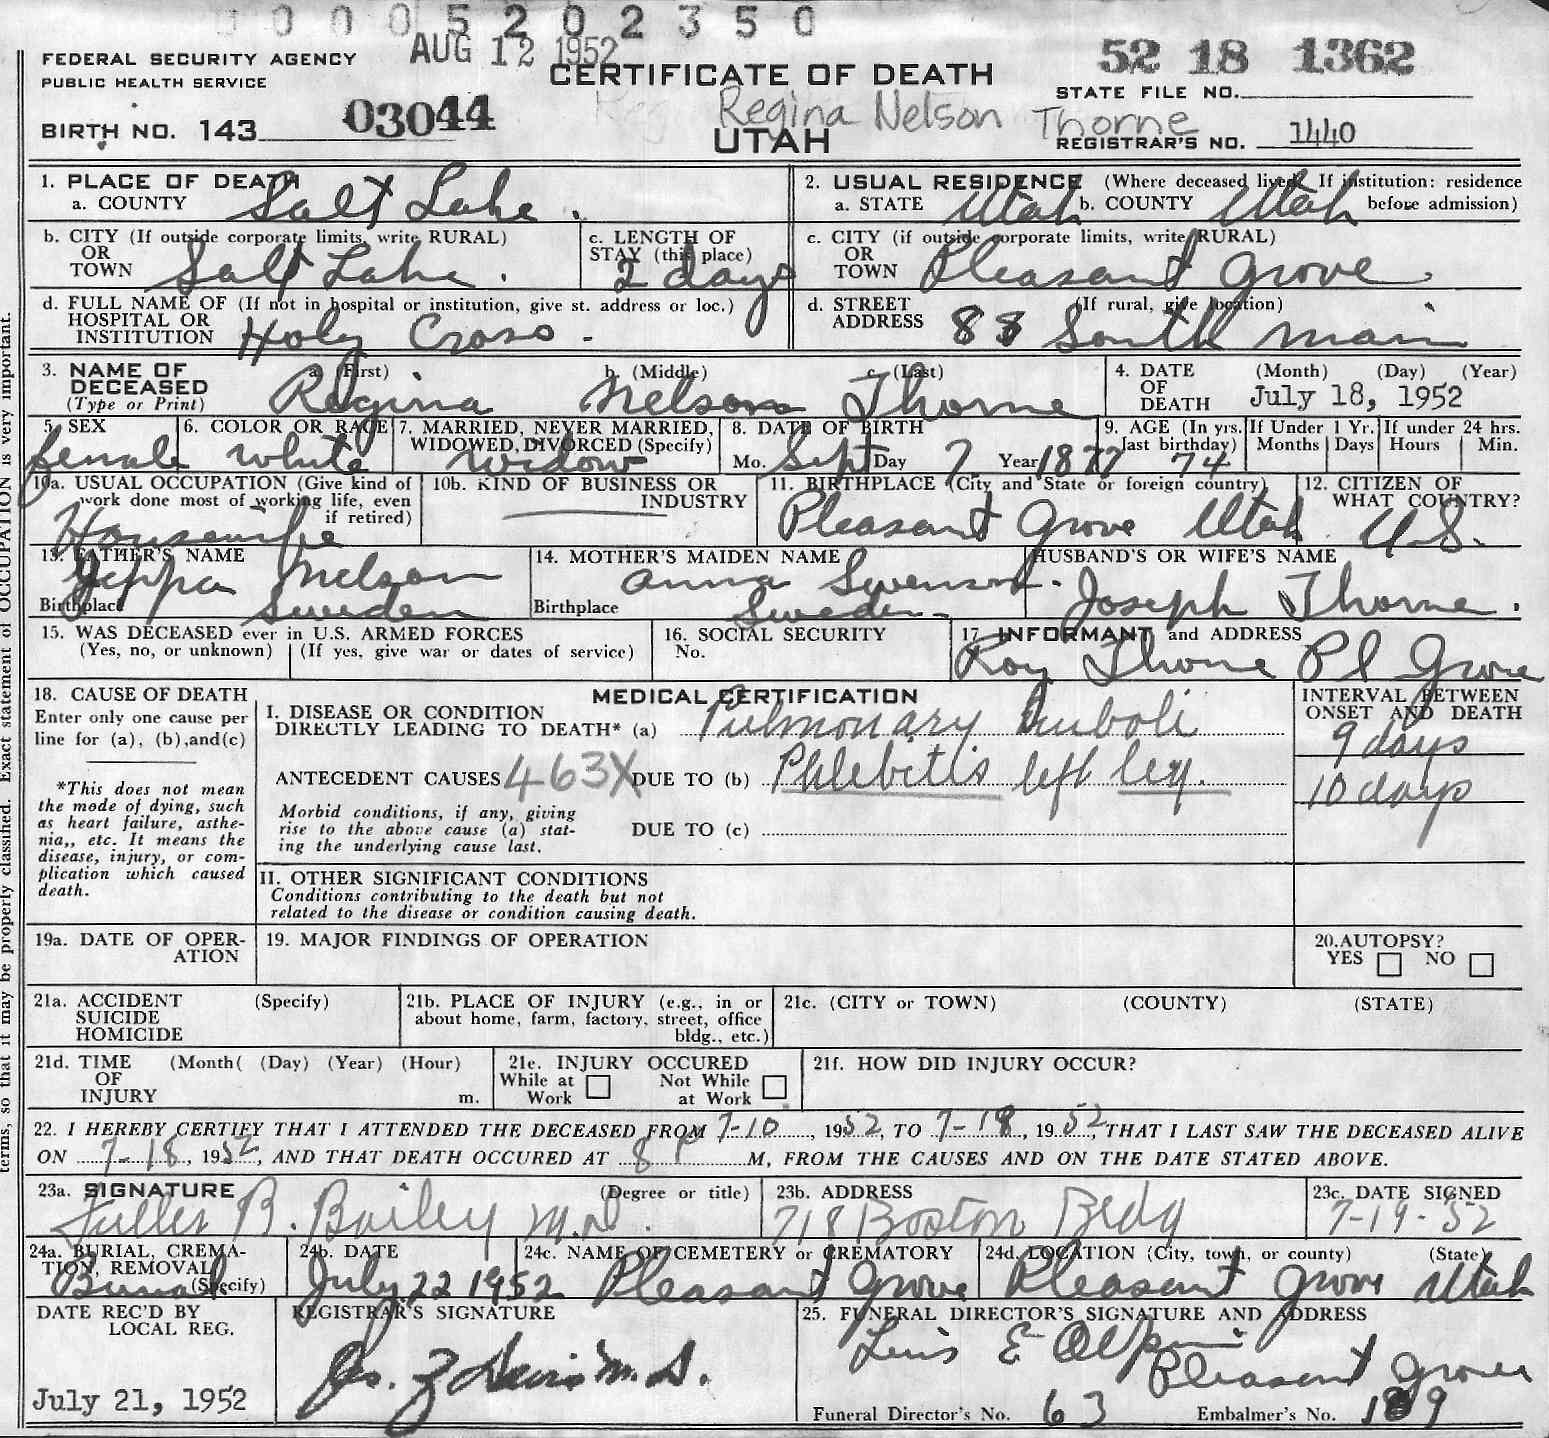 0 0 0 5 2 0 2 3 5 0
AUG 12 1952
FEDERAL SECURITY AGENCY
PUBLIC HEALTH SERVICE
CERTIFICATE OF DEATH
52 18 1362
STATE FILE NO.
BIRTH NO. 143 03044
Regina Nelson Thorne
UTAH
REGISTRAR'S NO. 1440
1. PLACE OF DEATH
a. COUNTY Salt Lake.
2. USUAL RESIDENCE (Where deceased lived. If institution: residence
a. STATE Utah b. COUNTY Utah before admission)
b. CITY (If outside corporate limits, write RURAL)
OR
TOWN Salt Lake.
c. LENGTH OF
STAY (this place)
2 days
c. CITY (if outside corporate limits, write RURAL)
OR
TOWN Pleasant Grove.
d. FULL NAME OF (If not in hospital or institution, give st. address or loc.)
HOSPITAL OR
INSTITUTION Holy Cross -
d. STREET (If rural, give location)
ADDRESS 88 South Main
3. NAME OF DECEASED
(Type or Print)
a. (First) b. (Middle) c. (Last)
Regina Nelson Thorne
4. DATE OF DEATH (Month) (Day) (Year)
July 18, 1952
5. SEX
female
6. COLOR OR RACE
white
7. MARRIED, NEVER MARRIED,
WIDOWED, DIVORCED (Specify)
widow
8. DATE OF BIRTH
Mo. Sept Day 7 Year 1877
9. AGE (In yrs. last birthday)
74
If Under 1 Yr. Months Days
If under 24 hrs. Hours Min.
10a. USUAL OCCUPATION (Give kind of
work done most of working life, even
if retired)
Housewife
10b. KIND OF BUSINESS OR
INDUSTRY
11. BIRTHPLACE (City and State or foreign country)
Pleasant Grove Utah
12. CITIZEN OF
WHAT COUNTRY?
U.S.
13. FATHER'S NAME
Jeppa Nelson
Birthplace Sweden
14. MOTHER'S MAIDEN NAME
Anna Swenson.
Birthplace Sweden
HUSBAND'S OR WIFE'S NAME
Joseph Thorne.
15. WAS DECEASED ever in U.S. ARMED FORCES
(Yes, no, or unknown) (If yes, give war or dates of service)
16. SOCIAL SECURITY
No.
17. INFORMANT and ADDRESS
Roy Thorne Pl Grove
18. CAUSE OF DEATH
Enter only one cause per
line for (a), (b), and (c)
*This does not mean
the mode of dying, such
as heart failure, asthe-
nia,, etc. It means the
disease, injury, or com-
plication which caused
death.
MEDICAL CERTIFICATION
I. DISEASE OR CONDITION
DIRECTLY LEADING TO DEATH* (a) Pulmonary Emboli
ANTECEDENT CAUSES 463X DUE TO (b) Phlebitis left leg.
Morbid conditions, if any, giving
rise to the above cause (a) stat-
ing the underlying cause last.
DUE TO (c)
INTERVAL BETWEEN
ONSET AND DEATH
9 days
10 days
II. OTHER SIGNIFICANT CONDITIONS
Conditions contributing to the death but not
related to the disease or condition causing death.
19a. DATE OF OPER-
ATION
19. MAJOR FINDINGS OF OPERATION
20. AUTOPSY?
YES NO
21a. ACCIDENT (Specify)
SUICIDE
HOMICIDE
21b. PLACE OF INJURY (e.g., in or
about home, farm, factory, street, office
bldg., etc.)
21c. (CITY or TOWN) (COUNTY) (STATE)
21d. TIME (Month( (Day) (Year) (Hour)
OF
INJURY m.
21e. INJURY OCCURED
While at Work Not While at Work
21f. HOW DID INJURY OCCUR?
22. I HEREBY CERTIFY THAT I ATTENDED THE DECEASED FROM 7-10, 1952, TO 7-18, 1952, THAT I LAST SAW THE DECEASED ALIVE
ON 7-18, 1952, AND THAT DEATH OCCURED AT 8 P M, FROM THE CAUSES AND ON THE DATE STATED ABOVE.
23a. SIGNATURE (Degree or title)
Fuller B. Bailey M.D.
23b. ADDRESS
718 Boston Bldg
23c. DATE SIGNED
7-19-52
24a. BURIAL, CREMA-
TION, REMOVAL
(Specify)
Burial
24b. DATE
July 22 1952
24c. NAME OF CEMETERY or CREMATORY
Pleasant Grove
24d. LOCATION (City, town, or county) (State)
Pleasant Grove Utah
DATE REC'D BY
LOCAL REG.
July 21, 1952
REGISTRAR'S SIGNATURE
25. FUNERAL DIRECTOR'S SIGNATURE AND ADDRESS
Pleasant Grove
Funeral Director's No. 63 Embalmer's No. 189
terms, so that it may be properly classified. Exact statement of OCCUPATION is very important.